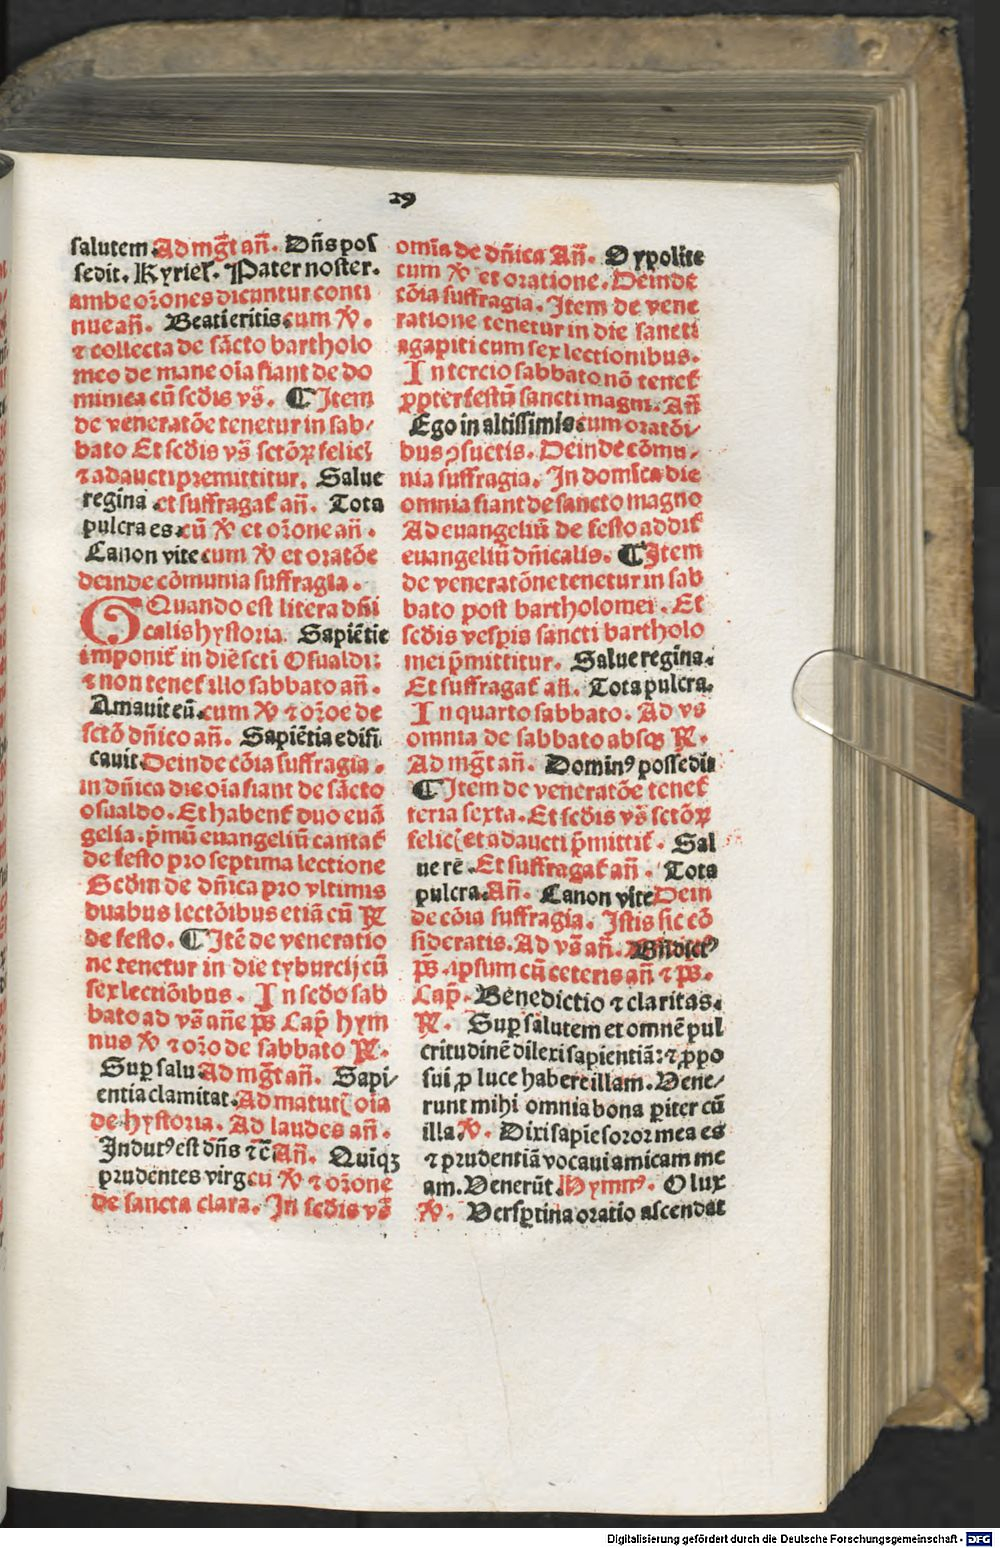 29
salutem. Ad mgt̄ an̄. Dn̄s pos
sedit. Kyriel. Pater noster.
ambe or̄ones dicuntur conti
nue an̄. Beati eritis. cum ℣.
⁊ collecta de sācto bartholo
meo de mane oīa fiant de do
minica cū scd̄is vs̄. ¶ Item
de veneratōe tenetur in sab/
bato Et scd̄is vs̄ sctōꝝ felici
⁊ adaucti premittitur. Salue
regina. et suffragat̄ an̄. Tota
pulcra es. cū ℣ et or̄one an̄.
Canon vite. cum ℣ et oratōe
deinde cōmunia suffragia.
Quando est litera dn̄i
calis hystoria. Sapiētie
imponit̄ in die scti Osualdi:
⁊ non tenet̄ illo sabbato an̄.
Amauit eū. cum ℣ ⁊ or̄oe de
sctō dn̄ico an̄. Sapiētia edifi
cauit. Deinde cōia suffragia.
in dn̄ica die oīa fiant de sācto
osualdo. Et habent̄ duo euā
gelia. pm̄ū euangeliū cantat̄
de festo pro septima lectione
Scdm̄ de dn̄ica pro vltimis
duabus lectōibus etiā cū ℟
de festo. ¶ Itē de veneratio
ne tenetur in die tyburcij cū
sex lectiōibus. In scd̄o sab
bato ad vs̄ an̄e ps̄ Cap̄ hym
nus ℣ ⁊ or̄o de sabbato ℟.
Sup̄ salu Ad mgt̄ an̄. Sapi/
entia clamitat. Ad matuti oīa
de hystoria. Ad laudes an̄.
Indutꝰ est dn̄s ⁊c̄ An̄. Quīqꝫ
prudentes virg cu ℣ ⁊ or̄one
de sancta clara. In scd̄is vs̄
omīa de dn̄ica An̄. O ypolite
cum ℣ et oratione. Deinde
cōia suffragia. Item de vene
ratione tenetur in die sancti
agapiti cum sex lectionibus.
In tercio sabbato nō tenet̄
ꝓpter festū sancti magni. An̄
Ego in altissimis cum oratōi/
bus ꝯsuetis. Deinde cōmu/
nia suffragia. In domīca die
omnia fiant de sancto magno
Ad euangeliū de festo addit̄
euangeliū dn̄icalis. ¶ Item
de veneratōne tenetur in sab
bato post bartholomei. Et
scd̄is vesp̄is sancti bartholo
mei p̄mittitur. Salue regina.
Et suffragat̄ an̄. Tota pulcra.
In quarto sabbato. Ad vs̄
omnia de sabbato absqꝫ ℟.
Ad mgt̄ an̄. Dominꝰ possedit
¶ Item de veneratōe tenet̄
feria sexta. Et scd̄is vs̄ sctōꝝ
felici et adaucti p̄mittit̄. Sal
ue re. Et suffragat̄ an̄. Tota
pulcra. An̄. Canon vite Dein
de cōia suffragia. Istis sic cō
sideratis. Ad vs̄ an̄. Bn̄dictꝰ
ps̄. ipsum cū ceteris an̄ ⁊ ps̄.
Cap̄. Benedictio ⁊ claritas.
℟. Sup̄ salutem et omnē pul
critudinē dilexi sapientiā: ⁊ ꝓpo
sui ꝓ luce habere illam. Vene/
runt mihi omnia bona ꝑiter cū
illa ℣. Dixi sapīe soror mea es
⁊ prudentiā vocaui amicam me
am. Venerūt. Hymnꝰ. O lux
℣. Vesꝑtina oratio ascendat
Digitalisierung gefördert durch die Deutsche Forschungsgemeinschaft - DFG